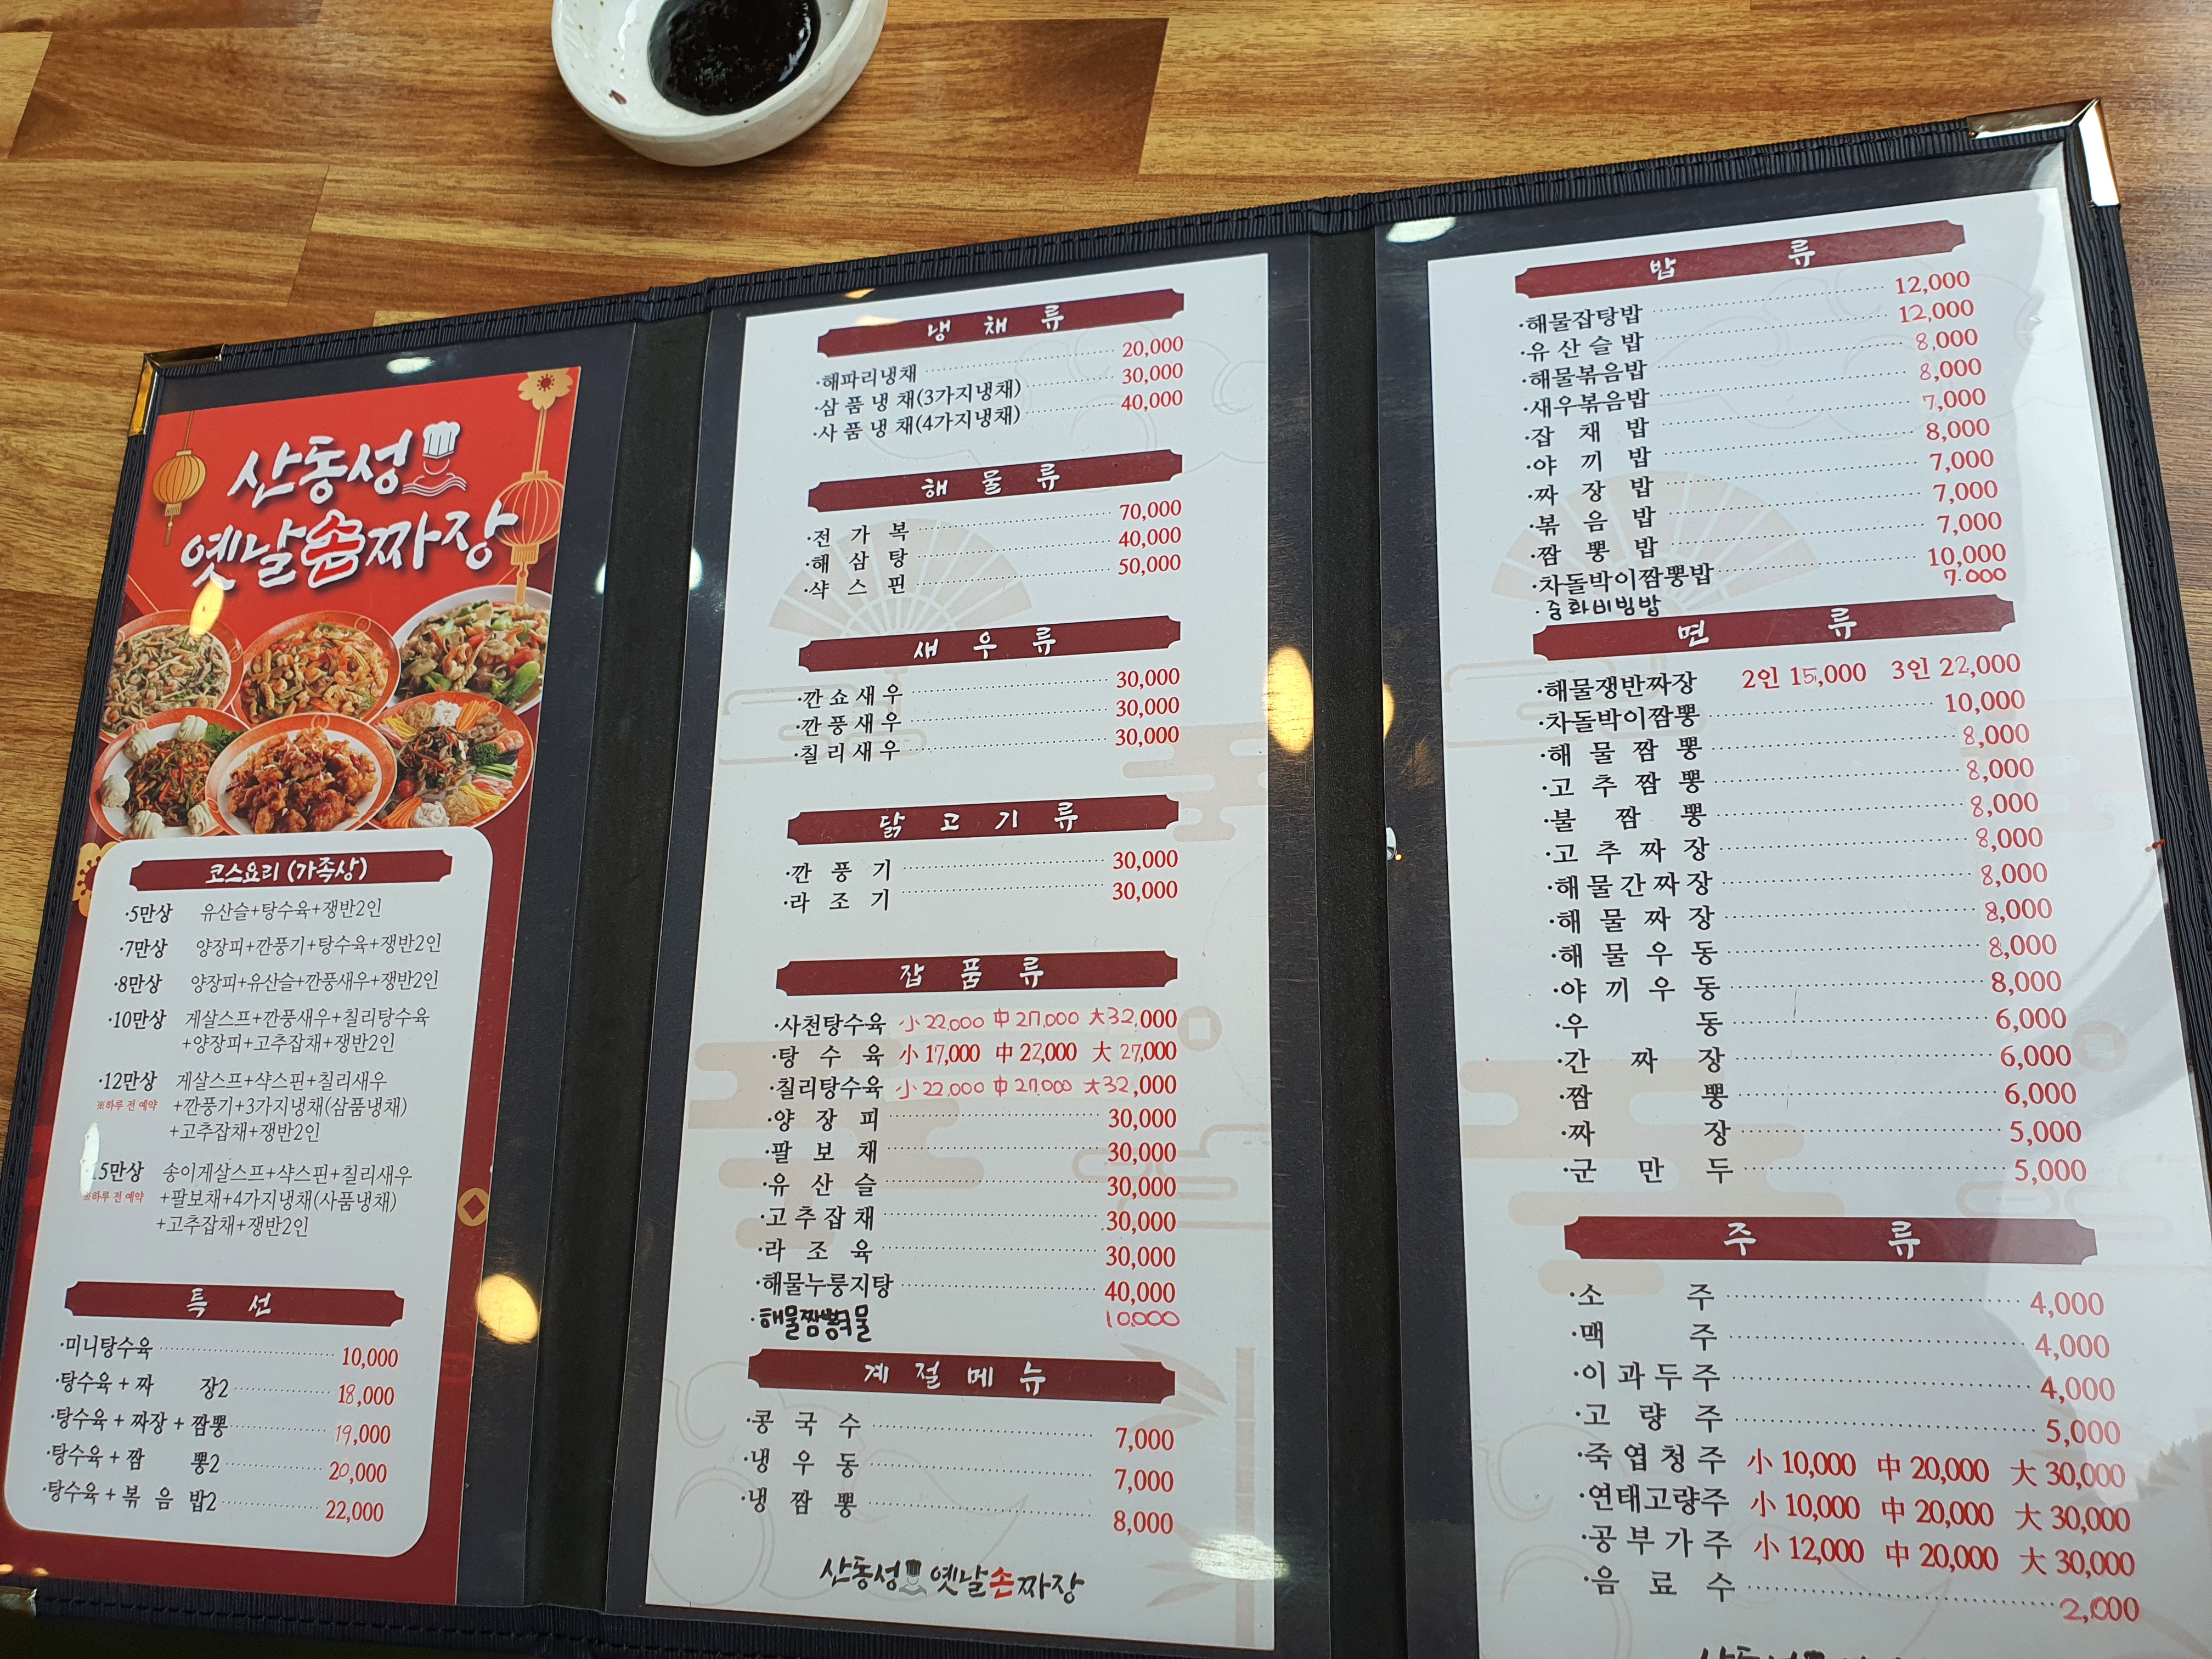 산동성
옛날손짜장
코스요리 (가족상)
·5만상 유산슬+탕수육+쟁반2인
·7만상 양장피+깐풍기+탕수육+쟁반2인
·8만상 양장피+유산슬+깐풍새우+쟁반2인
·10만상 게살스프+깐풍새우+칠리탕수육
+양장피+고추잡채+쟁반2인
·12만상 게살스프+샥스핀+칠리새우
※하루 전 예약 +깐풍기+3가지냉채(삼품냉채)
+고추잡채+쟁반2인
15만상 송이게살스프+샥스핀+칠리새우
※하루 전 예약 +팔보채+4가지냉채(사품냉채)
+고추잡채+쟁반2인
특 선
·미니탕수육 10,000
·탕수육 + 짜 장2 18,000
·탕수육 + 짜장 + 짬뽕 19,000
·탕수육 + 짬 뽕2 20,000
·탕수육 + 볶 음 밥2 22,000
냉 채 류
·해파리냉채 20,000
·삼 품 냉 채(3가지냉채) 30,000
·사 품 냉 채(4가지냉채) 40,000
해 물 류
·전 가 복 70,000
·해 삼 탕 40,000
·샥 스 핀 50,000
새 우 류
·깐 쇼 새 우 30,000
·깐 풍 새 우 30,000
·칠 리 새 우 30,000
닭 고 기 류
·깐 풍 기 30,000
·라 조 기 30,000
잡 품 류
·사천탕수육 小 22,000 中 27,000 大 32,000
·탕 수 육 小 17,000 中 22,000 大 27,000
·칠리탕수육 小 22,000 中 27,000 大 32,000
·양 장 피 30,000
·팔 보 채 30,000
·유 산 슬 30,000
·고 추 잡 채 30,000
·라 조 육 30,000
·해물누룽지탕 40,000
·해물짬뽕국물 10,000
계 절 메 뉴
·콩 국 수 7,000
·냉 우 동 7,000
·냉 짬 뽕 8,000
산동성 옛날손짜장
밥 류
·해물잡탕밥 12,000
·유 산 슬 밥 12,000
·해물볶음밥 8,000
·새우볶음밥 8,000
·잡 채 밥 7,000
·야 끼 밥 8,000
·짜 장 밥 7,000
·볶 음 밥 7,000
·짬 뽕 밥 7,000
·차돌박이짬뽕밥 10,000
·중화비빔밥 7.000
면 류
·해물쟁반짜장 2인 15,000 3인 22,000
·차돌박이짬뽕 10,000
·해 물 짬 뽕 8,000
·고 추 짬 뽕 8,000
·불 짬 뽕 8,000
·고 추 짜 장 8,000
·해 물 간 짜 장 8,000
·해 물 짜 장 8,000
·해 물 우 동 8,000
·야 끼 우 동 8,000
·우 동 6,000
·간 짜 장 6,000
·짬 뽕 6,000
·짜 장 5,000
·군 만 두 5,000
주 류
·소 주 4,000
·맥 주 4,000
·이 과 두 주 4,000
·고 량 주 5,000
·죽 엽 청 주 小 10,000 中 20,000 大 30,000
·연태고량주 小 10,000 中 20,000 大 30,000
·공 부 가 주 小 12,000 中 20,000 大 30,000
·음 료 수 2,000
산동성